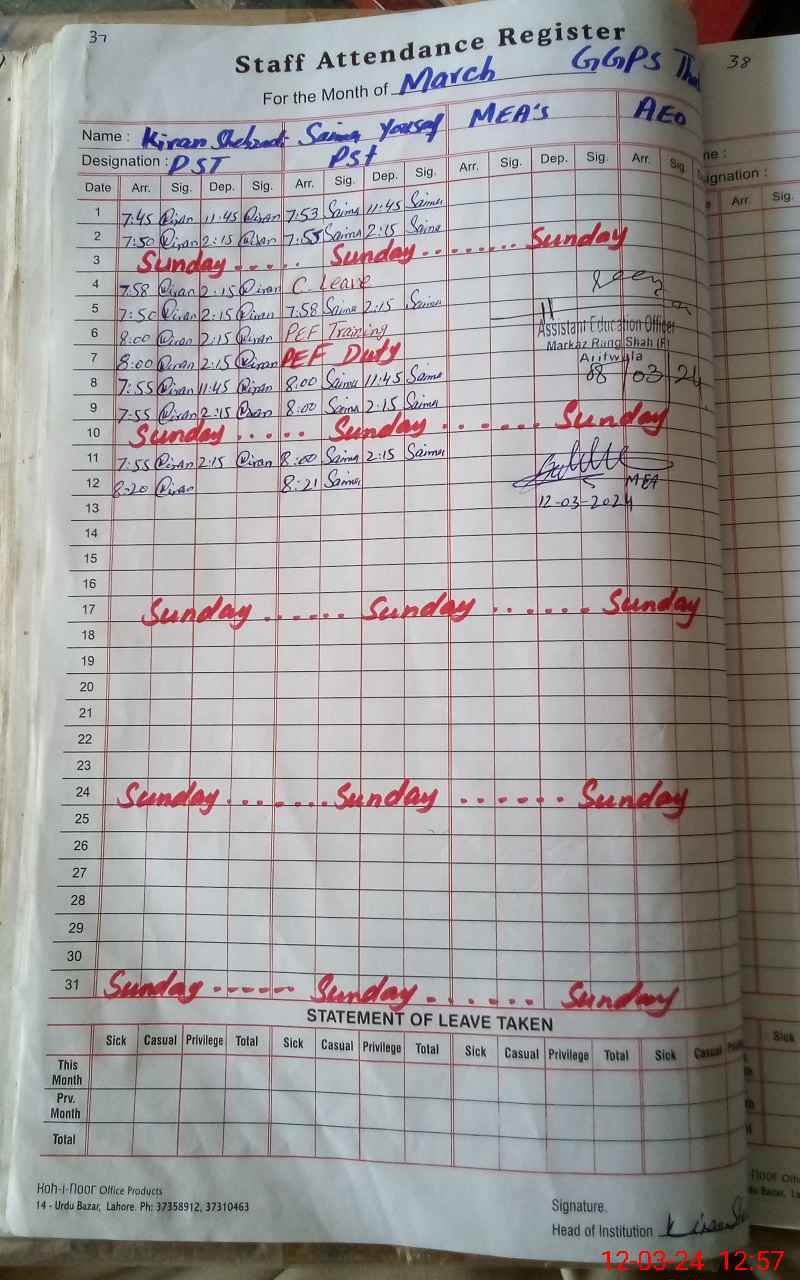 37
Staff Attendance Register
For the Month of March GGPS
Name : Kiran Shehzadi Saima Yousaf MEA's AEO
Designation : PST PSt
Date Arr. Sig. Dep. Sig. Arr. Sig. Dep. Sig. Arr. Sig. Dep. Sig. Arr. Sig.
1 7:45 Kiran 11:45 Kiran 7:53 Saima 11:45 Saima
2 7:50 Kiran 2:15 Kiran 7:55 Saima 2:15 Saima
3 Sunday ..... Sunday ........ Sunday
4 7:58 Kiran 2:15 Kiran C. Leave
5 7:50 Kiran 2:15 Kiran 7:58 Saima 2:15 Saima
6 8:00 Kiran 2:15 Kiran PEF Training
Assistant Education Officer
Markaz Rang Shah (F)
Arifwala
7 8:00 Kiran 2:15 Kiran PEF Duty
08/03/24
8 7:55 Kiran 11:45 Kiran 8:00 Saima 11:45 Saima
9 7-55 Kiran 2:15 Kiran 8:00 Saima 2:15 Saima
10 Sunday ..... Sunday ...... Sunday
11 7:55 Kiran 2:15 Kiran 8:00 Saima 2:15 Saima
12 8-20 Kiran 8:21 Saima MEA
12-03-2024
13
14
15
16
17 Sunday ...... Sunday ...... Sunday
18
19
20
21
22
23
24 Sunday ....... Sunday ...... Sunday
25
26
27
28
29
30
31 Sunday ...... Sunday ...... Sunday
STATEMENT OF LEAVE TAKEN
Sick Casual Privilege Total Sick Casual Privilege Total Sick Casual Privilege Total Sick Casual
This Month
Prv. Month
Total
Koh-i-noor Office Products
14 - Urdu Bazar, Lahore. Ph: 37358912, 37310463
Signature.
Head of Institution Kiran
38
Arr. Sig.
Sick
12-03-24 12:57